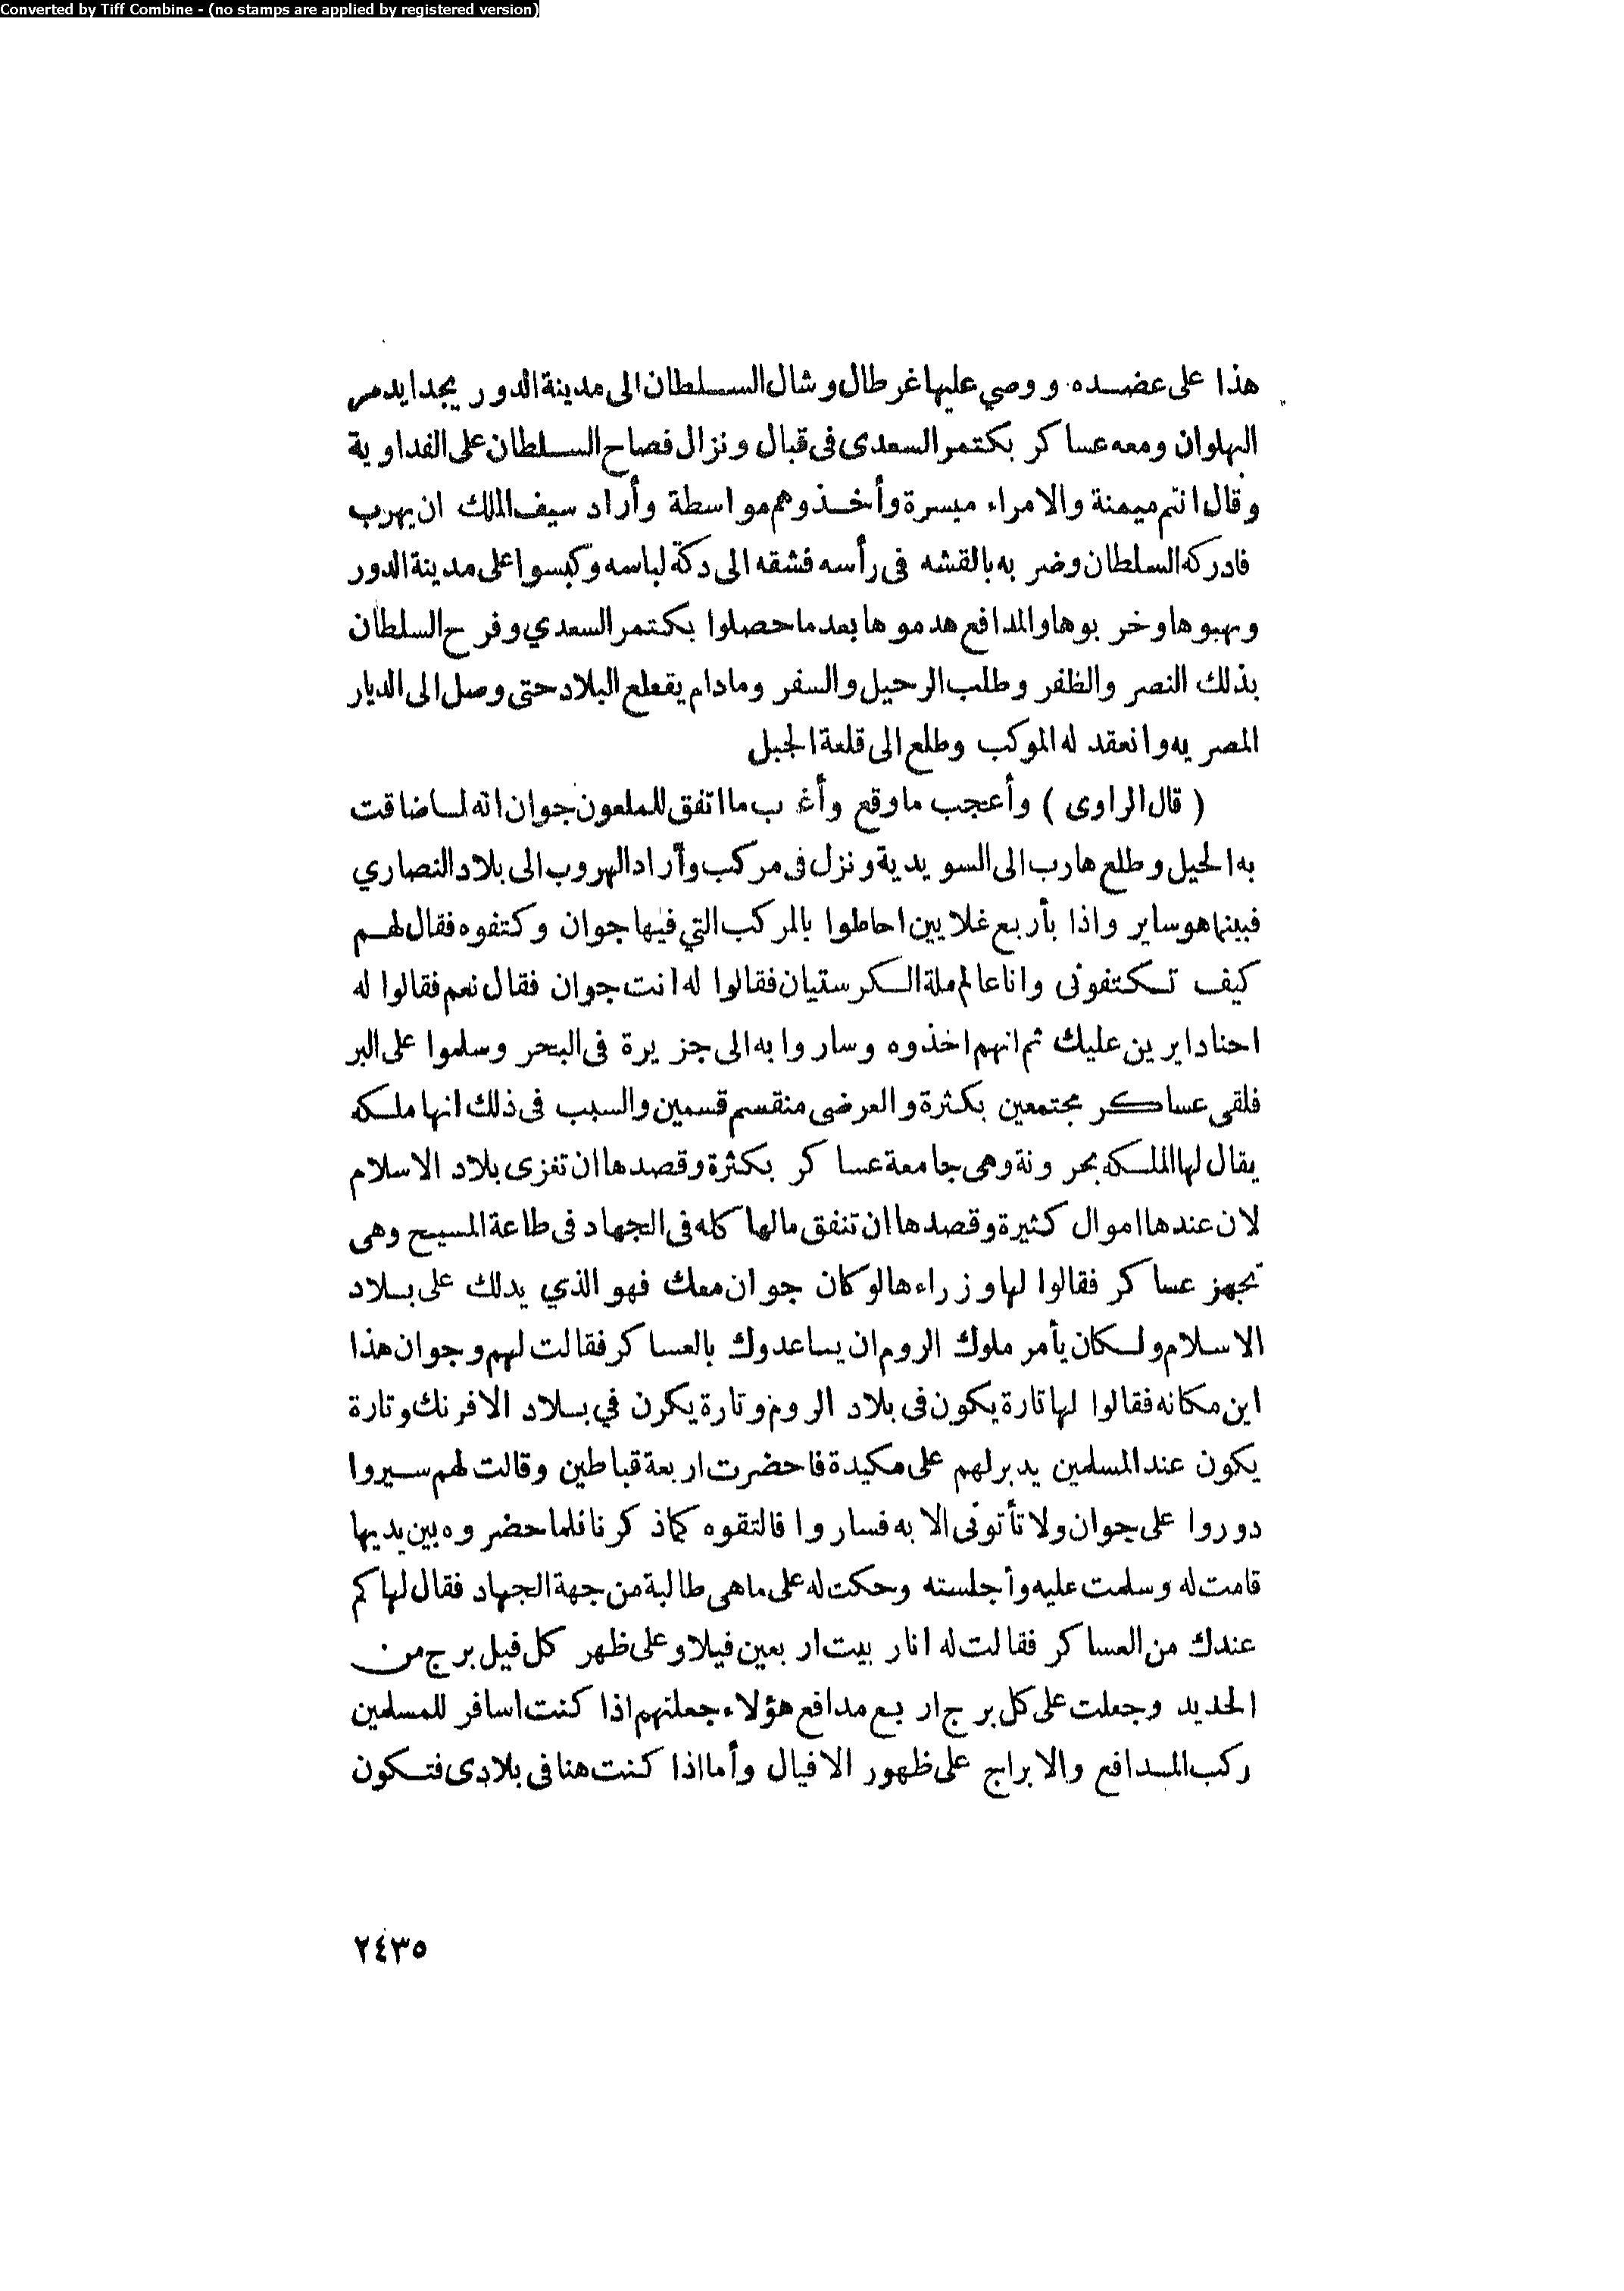 Converted by Tiff Combine - (no stamps are applied by registered version)
هذا على عضده ووصي عليها غرطال وشال السلطان الى مدينة الدور يجد ايدمر
البهلوان ومعه عساكر بكتمر السعدى فى قبال ونزال فصاح السلطان على الفداوية
وقال انتم ميمنة والامراء ميسرة وأخذوهم مواسطة وأراد سيف الملك ان يهرب
فادركه السلطان وضربه بالقشه فى رأسه فشقه الى دكة لباسه وكبسوا على مدينة الدور
ونهبوها وخربوها والمدافع هدموها بعد ما حصلوا بكتمر السعدي وفرح السلطان
بذلك النصر والظفر وطلب الرحيل والسفر ومادام يقطع البلاد حتى وصل الى الديار
المصريه وانعقد له الموكب وطلع الى قلعة الجبل
( قال الراوى ) وأعجب ما وقع وأغرب ما اتفق للملعون جوان انه لما ضاقت
به الحيل وطلع هارب الى السويدية ونزل فى مركب وأراد الهروب الى بلاد النصاري
فبينما هو ساير واذا بأربع غلايين احاطوا بالمركب التي فيها جوان وكتفوه فقال لهم
كيف تكتفونى وانا عالم ملة الكرستيان فقالوا له انت جوان فقال نعم فقالوا له
احنا دايرين عليك ثم انهم اخذوه وساروا به الى جزيرة فى البحر وسلموا على البر
فلقى عساكر مجتمعين بكثرة والعرضى منقسم قسمين والسبب فى ذلك انها ملكه
يقال لها الملكه بحرونة وهى جامعة عساكر بكثرة وقصدها ان تغزى بلاد الاسلام
لان عندها اموال كثيرة وقصدها ان تنفق مالها كله فى الجهاد فى طاعة المسيح وهى
تجهز عساكر فقالوا لها وزراءها لو كان جوان معك فهو الذي يدلك على بلاد
الاسلام ولكان يأمر ملوك الروم ان يساعدوك بالعساكر فقالت لهم وجوان هذا
اين مكانه فقالوا لها تارة يكون فى بلاد الروم وتارة يكرن في بلاد الافرنك وتارة
يكون عند المسلمين يدبر لهم على مكيدة فاحضرت اربعة قباطين وقالت لهم سيروا
دوروا على جوان ولا تأتونى الا به فساروا فالتقوه كما ذكرنا فلما حضروه بين يديها
قامت له وسلمت عليه وأجلسته وحكت له على ما هى طالبة من جهة الجهاد فقال لها كم
عندك من العساكر فقالت له انا ربيت اربعين فيلا وعلى ظهر كل فيل برج من
الحديد وجعلت على كل برج اربع مدافع هؤلاء جعلتهم اذا كنت اسافر للمسلمين
ركب المدافع والابراج على ظهور الافيال وأما اذا كنت هنا فى بلادى فتكون
٢٤٣٥